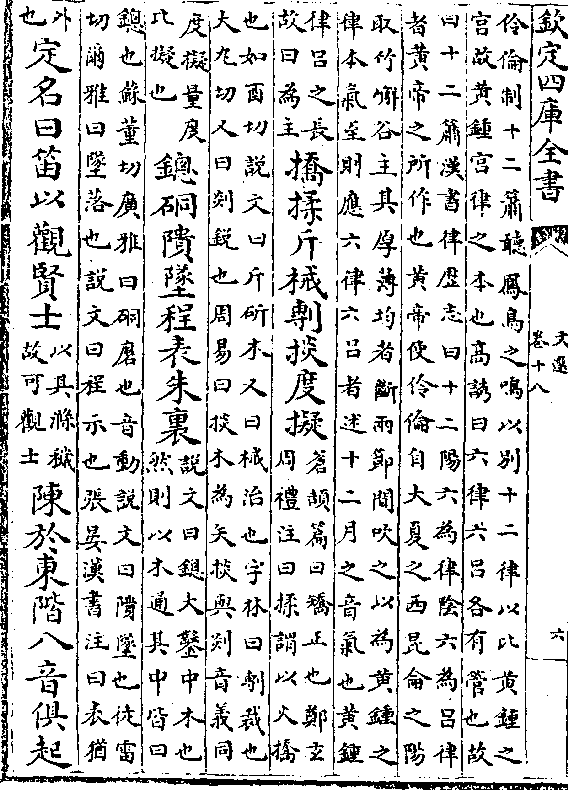 欽定四庫全書
文選
卷十八
六
伶倫制十二籥聽鳳鳥之鳴以别十二律以比黄鍾之
宫故黄鍾宫律之本也髙誘曰六律六吕各有管也故
曰十二籥漢書律厯志曰十二陽六為律隂六為吕律
者黄帝之所作也黄帝使伶倫自大夏之西昆侖之陽
取竹嶰谷主其厚薄均者斷兩節間吹之以為黄鍾之
律本氣至則應六律六吕者述十二月之音氣也黄鍾
律吕之長
故曰為主
撟揉斤械剸掞度擬
蒼頡篇曰矯正也鄭𤣥
周禮注曰揉謂以火撟
也如酉切説文曰斤斫木又曰械治也字林曰剸裁也
大丸切又曰剡鋭也周易曰掞木為矢掞與剡音義同
度擬量度
比擬也
鏓硐隤墜程表朱裏
説文曰鏓大鑿中木也
然則以木通其中皆曰
鏓也蘇董切廣雅曰硐磨也音動説文曰隤墜也徒雷
切爾雅曰墜落也説文曰程示也張晏漢書注曰表猶
外
也
定名曰笛以觀賢士
以其滌穢
故可觀士
陳於東階八音俱起